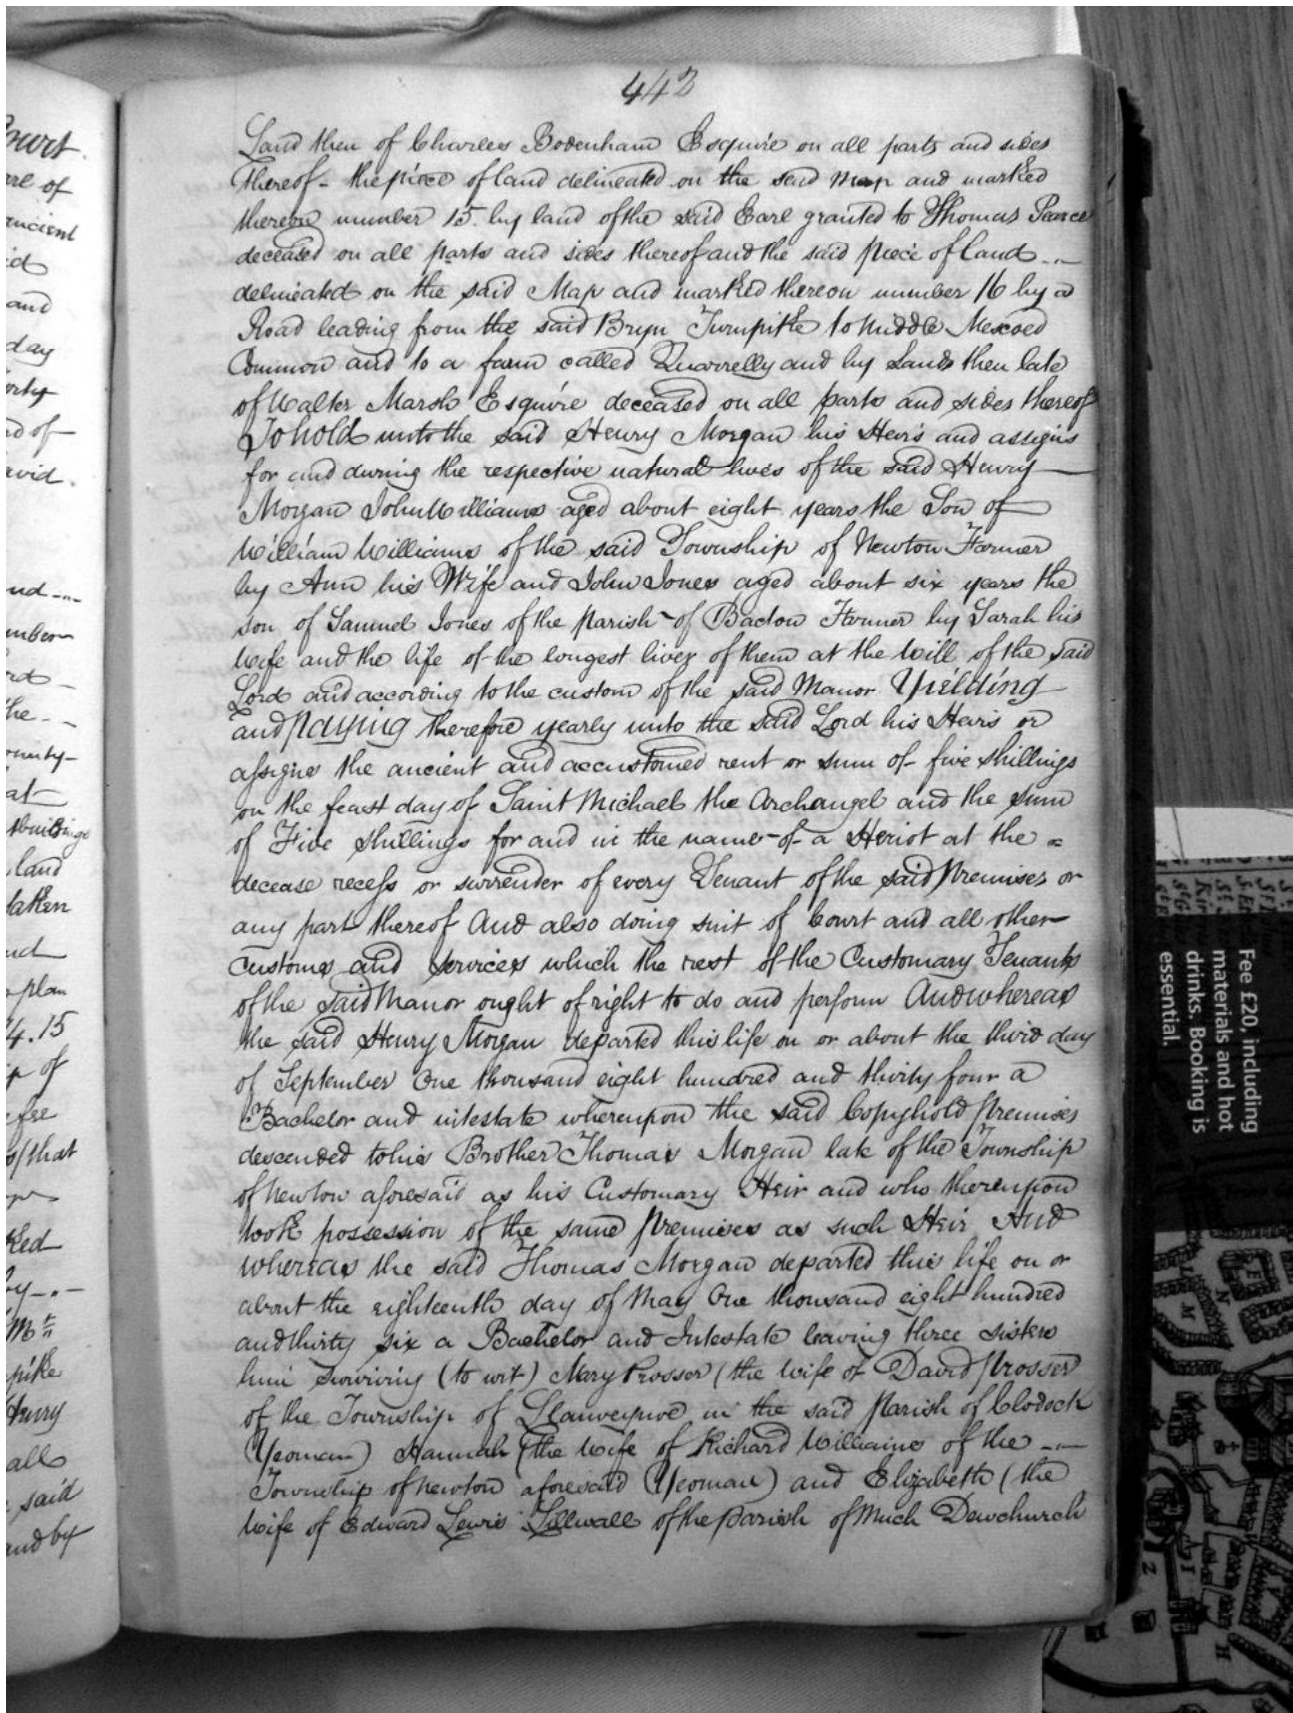 442
Land then of Charles Bodenham Esquire on all parts and sides
thereof - the piece of land delineated on the said Map and marked
thereon number 15. by land of the said Earl granted to Thomas Pearce
deceased on all parts and sides thereof and the said piece of Land
delineated on the said Map and marked thereon number 16 by a
Road leading from the said Bryn Turnpike to Middle Mescoed
Common and to a farm called Quarrelly and by Lands then late
of Walter Marsh Esquire deceased on all parts and sides thereof
To hold unto the said Henry Morgan his Heirs and assigns
for and during the respective natural lives of the said Henry
Morgan John Williams aged about eight years the Son of
William Williams of the said Township of Newton Farmer
by Ann his Wife and John Jones aged about six years the
son of Samuel Jones of the parish of Bacton Farmer by Sarah his
Wife and the life of the longest liver of them at the Will of the said
Lord and according to the custom of the said Manor Yielding
and paying therefore yearly unto the said Lord his Heirs or
assigns the ancient and accustomed rent or sum of five shillings
on the feast day of Saint Michael the Archangel and the sum
of Five shillings for and in the name of a Heriot at the
decease recess or surrender of every Tenant of the said premises or
any part thereof And also doing suit of Court and all other
customs and services which the rest of the Customary Tenants
of the said Manor ought of right to do and perform And whereas
the said Henry Morgan departed this life on or about the third day
of September One thousand eight hundred and thirty four a
Bachelor and intestate whereupon the said Copyhold premises
descended to his Brother Thomas Morgan late of the Township
of Newton aforesaid as his Customary Heir and who thereupon
took possession of the same premises as such Heir And
whereas the said Thomas Morgan departed this life on or
about the eighteenth day of May One thousand eight hundred
and thirty six a Bachelor and Intestate leaving three sisters
him surviving (to wit) Mary Prosser (the wife of David Prosser
of the Township of Llanveynoe in the said parish of Clodock
Yeoman) Hannah (the wife of Richard Williams of the
Township of Newton aforesaid Yeoman) and Elizabeth (the
Wife of Edward Lewis Lillwall of the parish of Much Dewchurch
Fee £20, including
materials and hot
drinks. Booking is
essential.